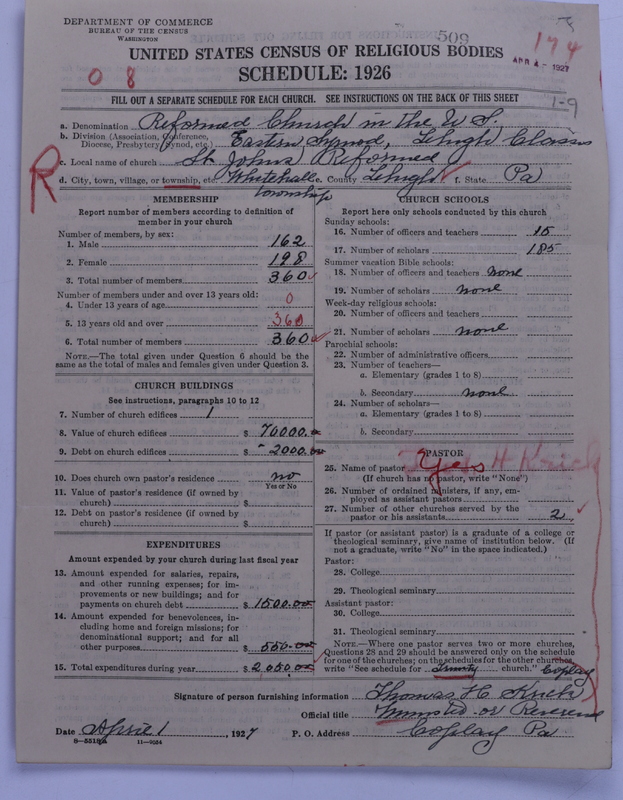 DEPARTMENT OF COMMERCE
BUREAU OF THE CENSUS
WASHINGTON
509
174
APR 4 - 1927
UNITED STATES CENSUS OF RELIGIOUS BODIES
SCHEDULE: 1926
0 8
FILL OUT A SEPARATE SCHEDULE FOR EACH CHURCH. SEE INSTRUCTIONS ON THE BACK OF THIS SHEET
1-9
a. Denomination Reformed Church in the U S.
b. Division (Association, Conference, Diocese, Presbytery, Synod, etc.) Eastern Synod, Lehigh Classis
R
c. Local name of church St Johns Reformed
d. City, town, village, or township, etc. Whitehall township e. County Lehigh f. State Pa
MEMBERSHIP
Report number of members according to definition of
member in your church
Number of members, by sex:
1. Male 162
2. Female 198
3. Total number of members 360
Number of members under and over 13 years old:
4. Under 13 years of age 0
5. 13 years old and over 360
6. Total number of members 360
NOTE.—The total given under Question 6 should be the
same as the total of males and females given under Question 3.
CHURCH BUILDINGS
See instructions, paragraphs 10 to 12
7. Number of church edifices 1
8. Value of church edifices $ 70000.00
9. Debt on church edifices $ 2000.00
10. Does church own pastor's residence no
Yes or No
11. Value of pastor's residence (if owned by
church) $
12. Debt on pastor's residence (if owned by
church) $
EXPENDITURES
Amount expended by your church during last fiscal year
13. Amount expended for salaries, repairs,
and other running expenses; for im-
provements or new buildings; and for
payments on church debt $ 1500.00
14. Amount expended for benevolences, in-
cluding home and foreign missions; for
denominational support; and for all
other purposes $ 550.00
15. Total expenditures during year $ 2050.00
CHURCH SCHOOLS
Report here only schools conducted by this church
Sunday schools:
16. Number of officers and teachers 15
17. Number of scholars 185
Summer vacation Bible schools:
18. Number of officers and teachers none
19. Number of scholars none
Week-day religious schools:
20. Number of officers and teachers
21. Number of scholars none
Parochial schools:
22. Number of administrative officers
23. Number of teachers—
a. Elementary (grades 1 to 8)
b. Secondary none
24. Number of scholars—
a. Elementary (grades 1 to 8)
b. Secondary
PASTOR
25. Name of pastor Yes H Krick
(If church has no pastor, write "None")
26. Number of ordained ministers, if any, em-
ployed as assistant pastors
27. Number of other churches served by the
pastor or his assistants 2
If pastor (or assistant pastor) is a graduate of a college or
theological seminary, give name of institution below. (If
not a graduate, write "No" in the space indicated.)
Pastor:
28. College
29. Theological seminary
Assistant pastor:
30. College
31. Theological seminary
NOTE.—Where one pastor serves two or more churches,
Questions 28 and 29 should be answered only on the schedule
for one of the churches; on the schedules for the other churches,
write "See schedule for Trinity church." Coplay
Signature of person furnishing information Thomas H. Krick
Official title Minister or Reverend
Date April 1, 1927 P. O. Address Coplay Pa
8-5518a 11-9024